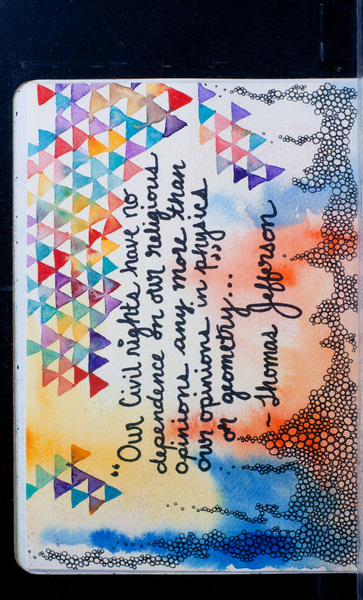 "Our Civil rights have no
dependence on our religious
opinions any more than
our opinions in physics
or geometry..."
~Thomas Jefferson